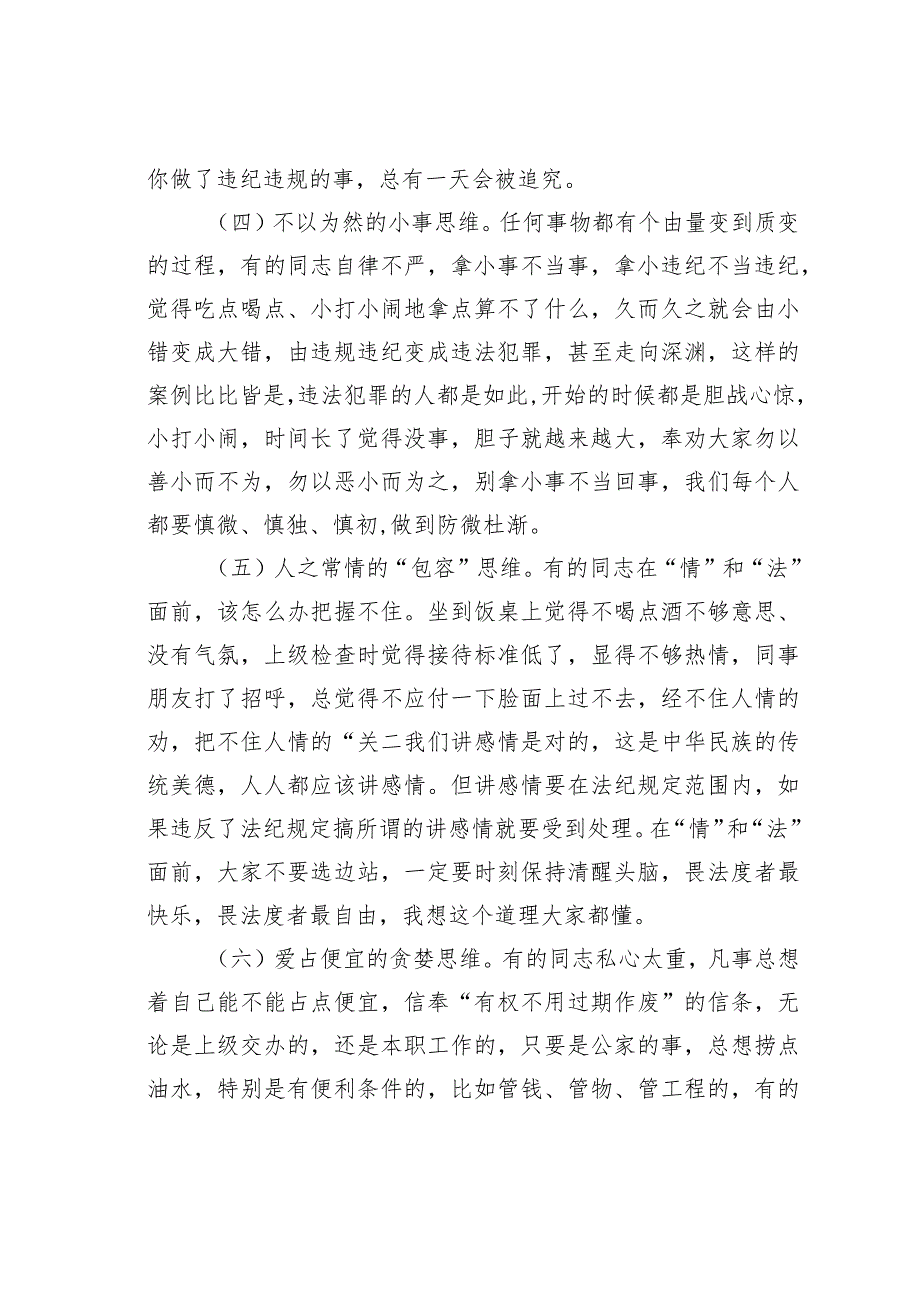 你做了违纪违规的事，总有一天会被追究。
（四）不以为然的小事思维。任何事物都有个由量变到质变
的过程，有的同志自律不严，拿小事不当事，拿小违纪不当违纪，
觉得吃点喝点、小打小闹地拿点算不了什么，久而久之就会由小
错变成大错，由违规违纪变成违法犯罪，甚至走向深渊，这样的
案例比比皆是,违法犯罪的人都是如此,开始的时候都是胆战心惊，
小打小闹，时间长了觉得没事，胆子就越来越大，奉劝大家勿以
善小而不为，勿以恶小而为之，别拿小事不当回事，我们每个人
都要慎微、慎独、慎初,做到防微杜渐。
（五）人之常情的“包容”思维。有的同志在“情”和“法”
面前，该怎么办把握不住。坐到饭桌上觉得不喝点酒不够意思、
没有气氛，上级检查时觉得接待标准低了，显得不够热情，同事
朋友打了招呼，总觉得不应付一下脸面上过不去，经不住人情的
劝，把不住人情的“关二我们讲感情是对的，这是中华民族的传
统美德，人人都应该讲感情。但讲感情要在法纪规定范围内，如
果违反了法纪规定搞所谓的讲感情就要受到处理。在“情”和“法”
面前，大家不要选边站，一定要时刻保持清醒头脑，畏法度者最
快乐，畏法度者最自由，我想这个道理大家都懂。
（六）爱占便宜的贪婪思维。有的同志私心太重，凡事总想
着自己能不能占点便宜，信奉“有权不用过期作废”的信条，无
论是上级交办的，还是本职工作的，只要是公家的事，总想捞点
油水，特别是有便利条件的，比如管钱、管物、管工程的，有的